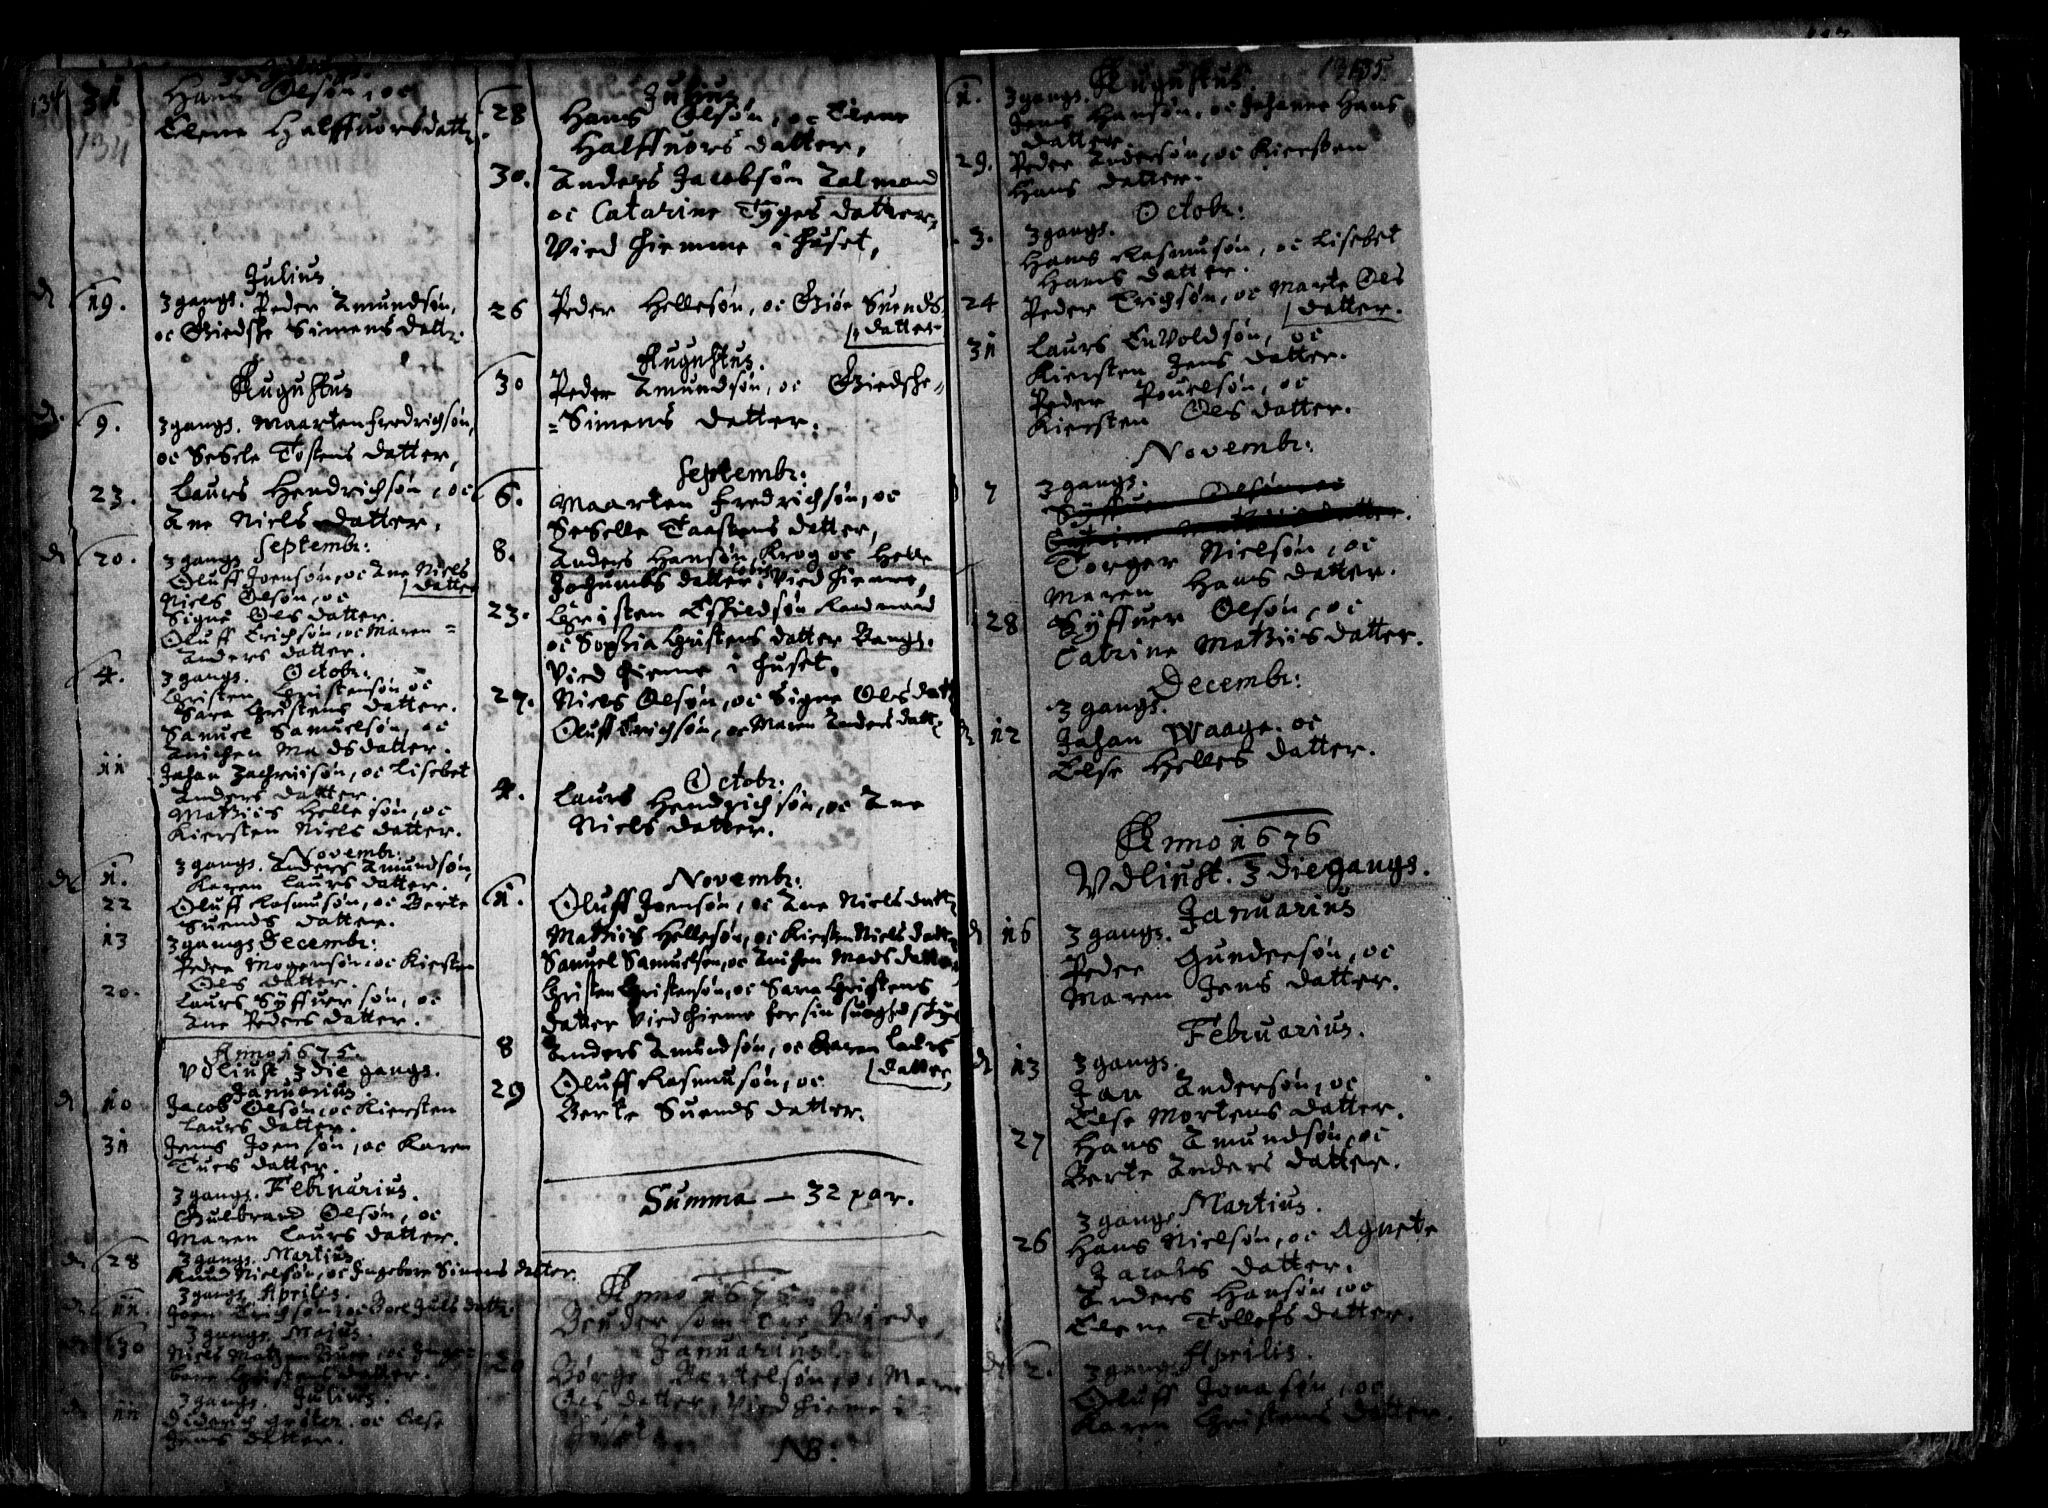 134
31
Hans Olsøn, oc
Elene Halffuorsdattr.
134
Julius
19. 3 gangs. Peder Amundsøn,
oc Giedske Simens dattr.
Augustus
9. 3 gangs. Maarten fredrichsøn,
oc Sesele Tostens datter,
23. Laurs Hendrichsøn, oc
Ane Niels datter,
Septembr:
20. 3 gangs
Oluff Joensøn, oc Ane Niels
datter
Niels Olsøn, oc
Signe Ols datter.
Oluff Erichsøn, oc Maren =
Anders datter.
4. 3 gangs. Octobr:
Christen Christensøn oc
Sara Christens datter.
Samuel Samuelsøn, oc
Anichen Madsdatter.
11 Johan Zachriisøn, oc Lisebet
Anders datter.
Mathiis Hellesøn, oc
Kiersten Niels datter.
Novembr:
1. 3 gangs. Anders Amundsøn,
Karen Laurs datter.
22 Oluff Rasmusøn, oc Berte
Suends datter.
13 3 gangs Decembr:
Peder Mogensøn, oc Kiersten
Ols datter.
20. Laurs Syffuersøn, oc
Ane Peders datter.
Anno 1675.
Vdliust 3 die gangs.
Januarius.
10 Jacob Olsøn, oc Kiersten
Laurs datter.
31 Jens Joensøn, oc Karen
Tues datter.
3 gangs. Februarius.
Gulbrand Olsøn, oc
Maren Laurs datter.
28 3 gangs. Martius
Knud Nielsøn, oc Ingebore Simens datter.
3 gangs Aprilis.
11. Joen Erichsøn, oc
3 gangs. Majus.
30 Niels
3 gangs. Julius.
11 Diderich oc Else
Jens datter.
Julius
28 Hans Olsøn, oc Elene
Halffuors datter,
30. Anders Jacobsøn Zalmand
oc Catarine Tyges datter,
Vied hiemme i huset,
26 Peder Hellesøn, oc Giøe Suends
datter
Augustus.
30 Peder Amundsøn, oc Giedske=
=Simens datter.
Septembr:
6. Maarten Fredrichsøn, oc
Seselle Taastens datter,
8. Anders Hansøn Krog oc Helle
Jochumbs datter Vied hieme,
23. Christen Eskildsøn Raadmand
oc Sophia Christens datter Bangs.
Vied hieme i huset.
27. Niels Olsøn, oc Signe Ols datt
Oluff Erichsøn, oc Maren Anders datt.
Octobr:
4. Laurs Hendrichsøn, oc Ane
Niels datter.
Novembr:
1. Oluff Joensøn, oc Ane Niels datt
Mathiis Hellesøn, oc Kiersten Niels datt
Samuel Samuelsøn, oc Anichen Mads datter
Christen Christensøn, oc Sara Christens
datter Vied hieme for sin suaghed skyl
8 Anders Amundsøn, oc Karen Laurs
datter,
29 Oluff Rasmusøn, oc
Berte Suends datter.
Summa — 32 par.
Anno 1675.
Bønder som ere Viede,
Januarius.
20 Børge Bertelsøn, oc Maren
Ols datter, Vied hieme i
huset
NB.
135
Augustus.
1. 3 gangs.
Jens Hansøn, oc Johanne Hans
datter
29. Peder Andersøn, oc Kiersten
Hans datter.
Octobr:
3. 3 gangs.
Hans Rasmusøn, oc Lisebet
Hans datter.
24 Peder Erichsøn, oc Marte Ols
datter.
31 Laurs Envoldsøn, oc
Kiersten Jens datter.
Peder Pouelsøn, oc
Kiersten Ols datter.
Novembr:
7 3 gangs.
Syffuer Olsøn, oc
Catrine Mathiis datter.
Torger Nielsøn, oc
Maren Hans datter.
28 Syffuer Olsøn, oc
Catrine Mathiis datter.
Decembr:
3 gangs.
12 Johan Waage. oc
Else Helles datter.
Anno 1676
Vdliust. 3 die gangs.
Januarius
16 3 gangs.
Peder Gundersøn, oc
Maren Jens datter.
Februarius.
13 3 gangs.
Jan Andersøn, oc
Else Mortens datter.
27 Hans Amundsøn, oc
Berte Anders datter.
3 gangs Martius.
26 Hans Nielsøn, oc Agnete
Jacobs datter.
Anders Hansøn, oc
Elene Tollefs datter.
3 gangs Aprilis.
2. Oluff Jonasøn, oc
Karen Christens datter.